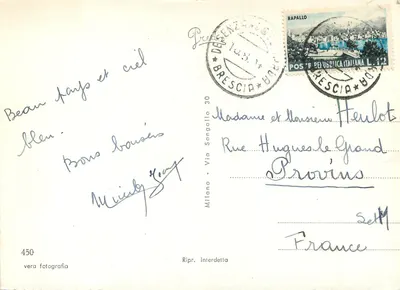 RAPALLO
POSTE REPUBBLICA ITALIANA L. 12
BRESCIA
BRESCIA
Beau pays et ciel
bleu.
Bons baisers
Madame et Monsieur Heulot
Rue Hugues le Grand
Provins
S et M
France
Milano - Via Sangallo 30
450
vera fotografia
Ripr. interdetta